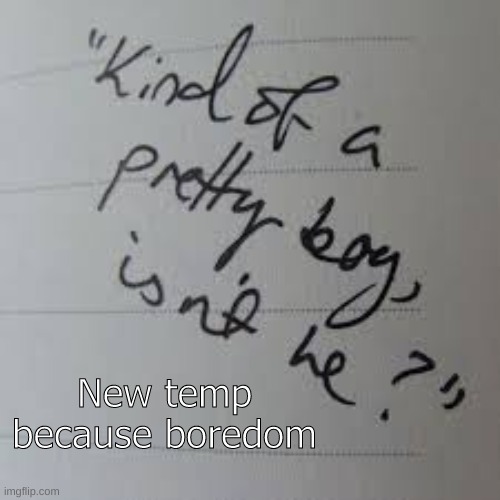 "Kind of a
pretty boy,
isn't he?"
New temp
because boredom
imgflip.com